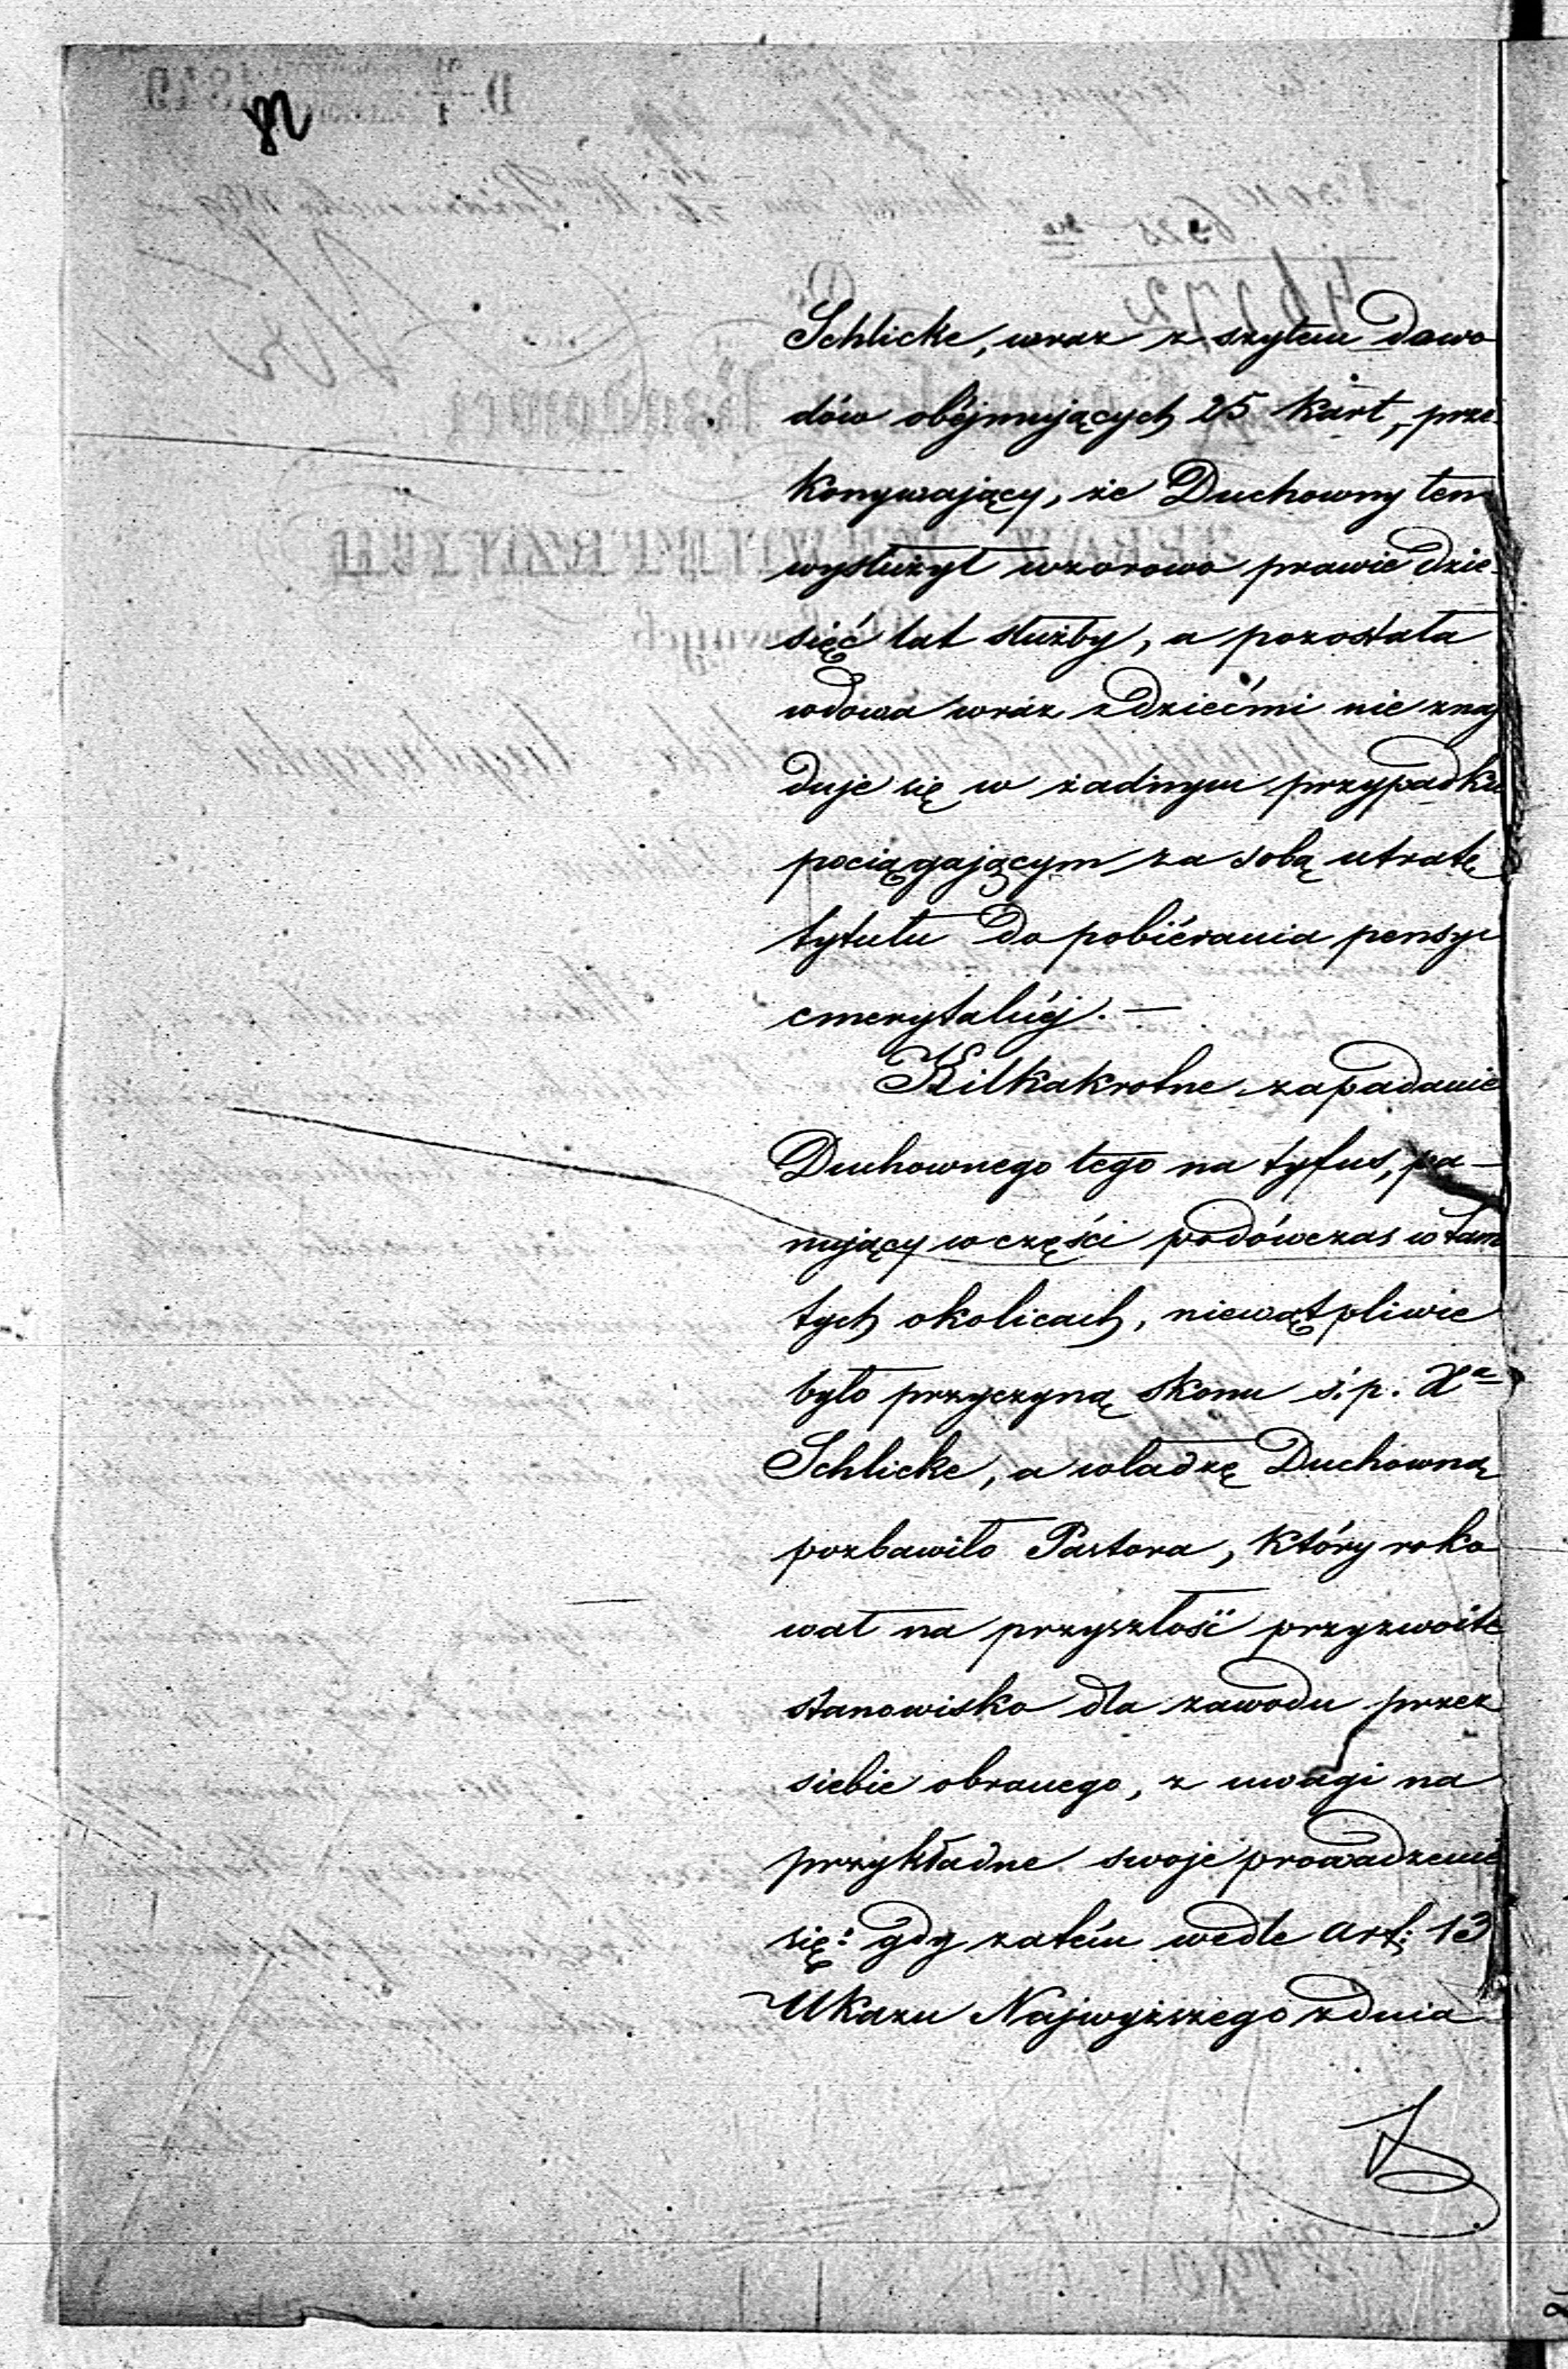 Schlicke, wraz z szytem dowo
dów obéjmujących 25 kart, prze-
konywający, że Duchowny ten
wysłużył wzorowo prawie dzie-
sięć lat służby, a pozostała
wdowa wraz z dziećmi nie znaj
duje się w żadnym przypadku
pociągającym za sobą utratę
tytułu do pobiérania pensyi
emerytalnéj. —
Kilkakrotne zapadanie
Duchownego tego na tyfus, pa-
nujący w części podówczas w tam
tych okolicach, niewątpliwie
było przyczyną skonu ś. p. Xa
Schlicke, a władzę Duchowną
pozbawiło Pastora, który roko
wał na przyszłość przyzwoite
stanowisko dla zawodu przez
siebie obranego, z uwagi na
przykładne swoje prowadzenie
się: gdy zatém wedle art: 13
Ukazu Najwyższego z dnia